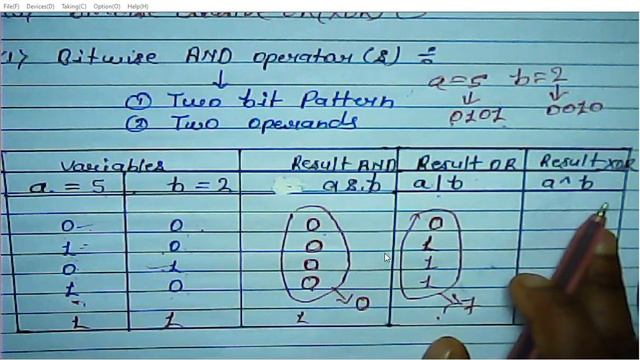 File(F) Devices(D) Taking(C) Option(O) Help(H)
1) Bitwise AND operator (&) :
① Two bit Pattern
② Two operands
a=5 b=2
0101 0010
Variables Result AND Result OR Result XOR
a = 5 b = 2 a & b a | b a ^ b
0 0 0 0
1 0 0 1
0 1 0 1
1 0 0 1
0 7
1 1 1